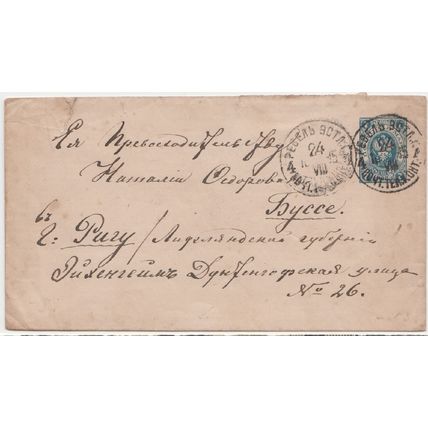 Ея Превосходительству
Наталіи Ѳедоровнѣ
Буссе.
въ
г. Ригу / Лифляндской губерніи
Эйхенгеймъ Дунтенгофская улица
№ 26.
РЕВЕЛЬ ЭСТЛ.
24
VIII
РЕВЕЛЬ ЭСТЛ.
24
ПОЧТ. ТЕЛ. КОНТ.